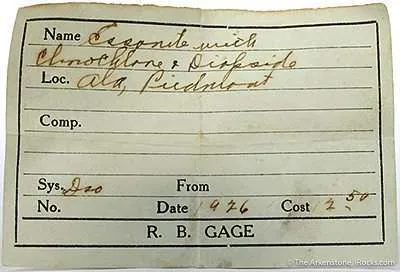 Name Essonite with
Clinochlore & Diopside
Loc. Ala, Piedmont
Comp.
Sys. Iso From
No. Date 1926 Cost 12.50
R. B. GAGE
© The Arkenstone, iRocks.com